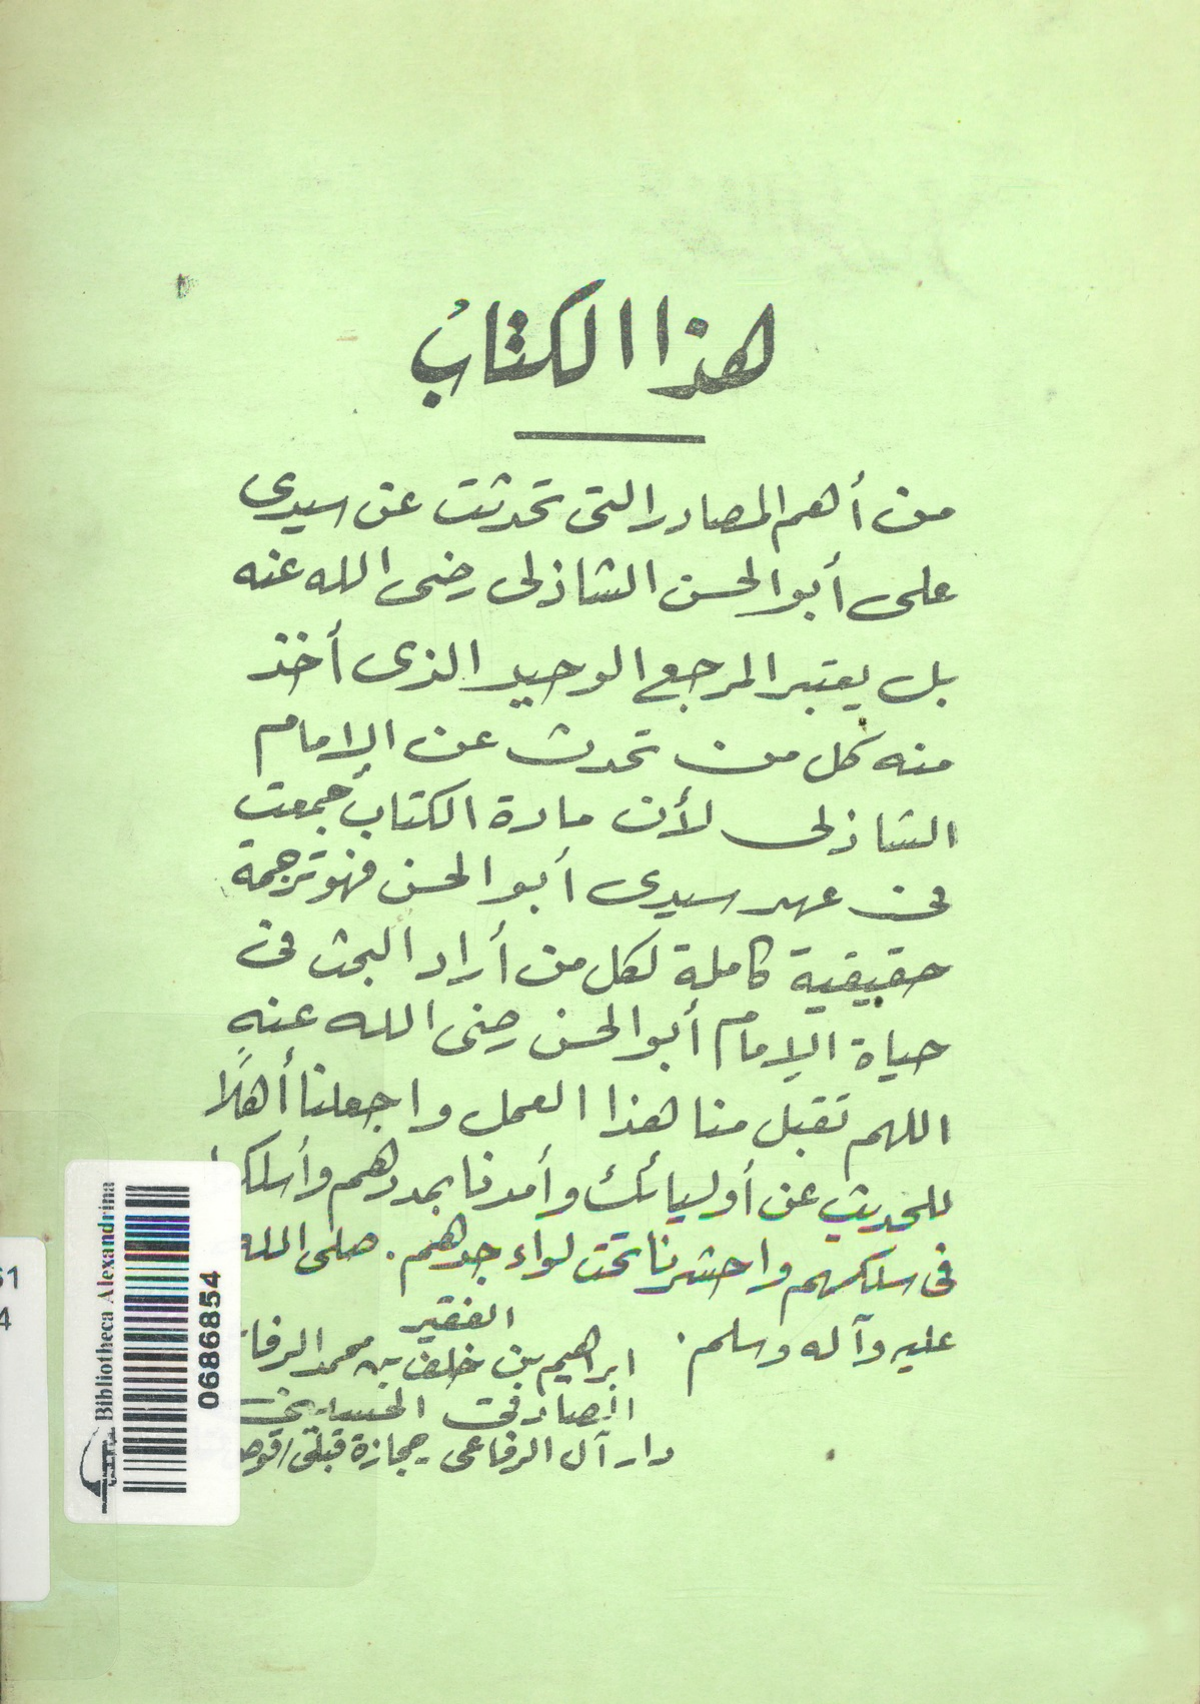 هذا الكتابُ
من أهم المصادر التى تحدثت عن سيدى
على أبو الحسن الشاذلى رضى الله عنه
بل يعتبر المرجع الوحيد الذى أخذ
منه كل من تحدث عن الإمام
الشاذلى لأن مادة الكتاب جمعت
فى عهد سيدى أبو الحسن فهو ترجمة
حقيقية كاملة لكل من أراد البحث فى
حياة الإمام أبو الحسن رضى الله عنه
اللهم تقبل منا هذا العمل واجعلنا أهلاً
للحديث عن أوليائك وأمدنا بمددهم وأسلك
فى سلكهم واحشرنا تحت لواء جدهم. صلى الله
عليه وآله وسلم.
الفقير
ابراهيم بن خلف بن محمد الرفا
دار آل الرفاعى حجازة قبلى/قوص
Bibliotheca Alexandrina
0686854
51
4